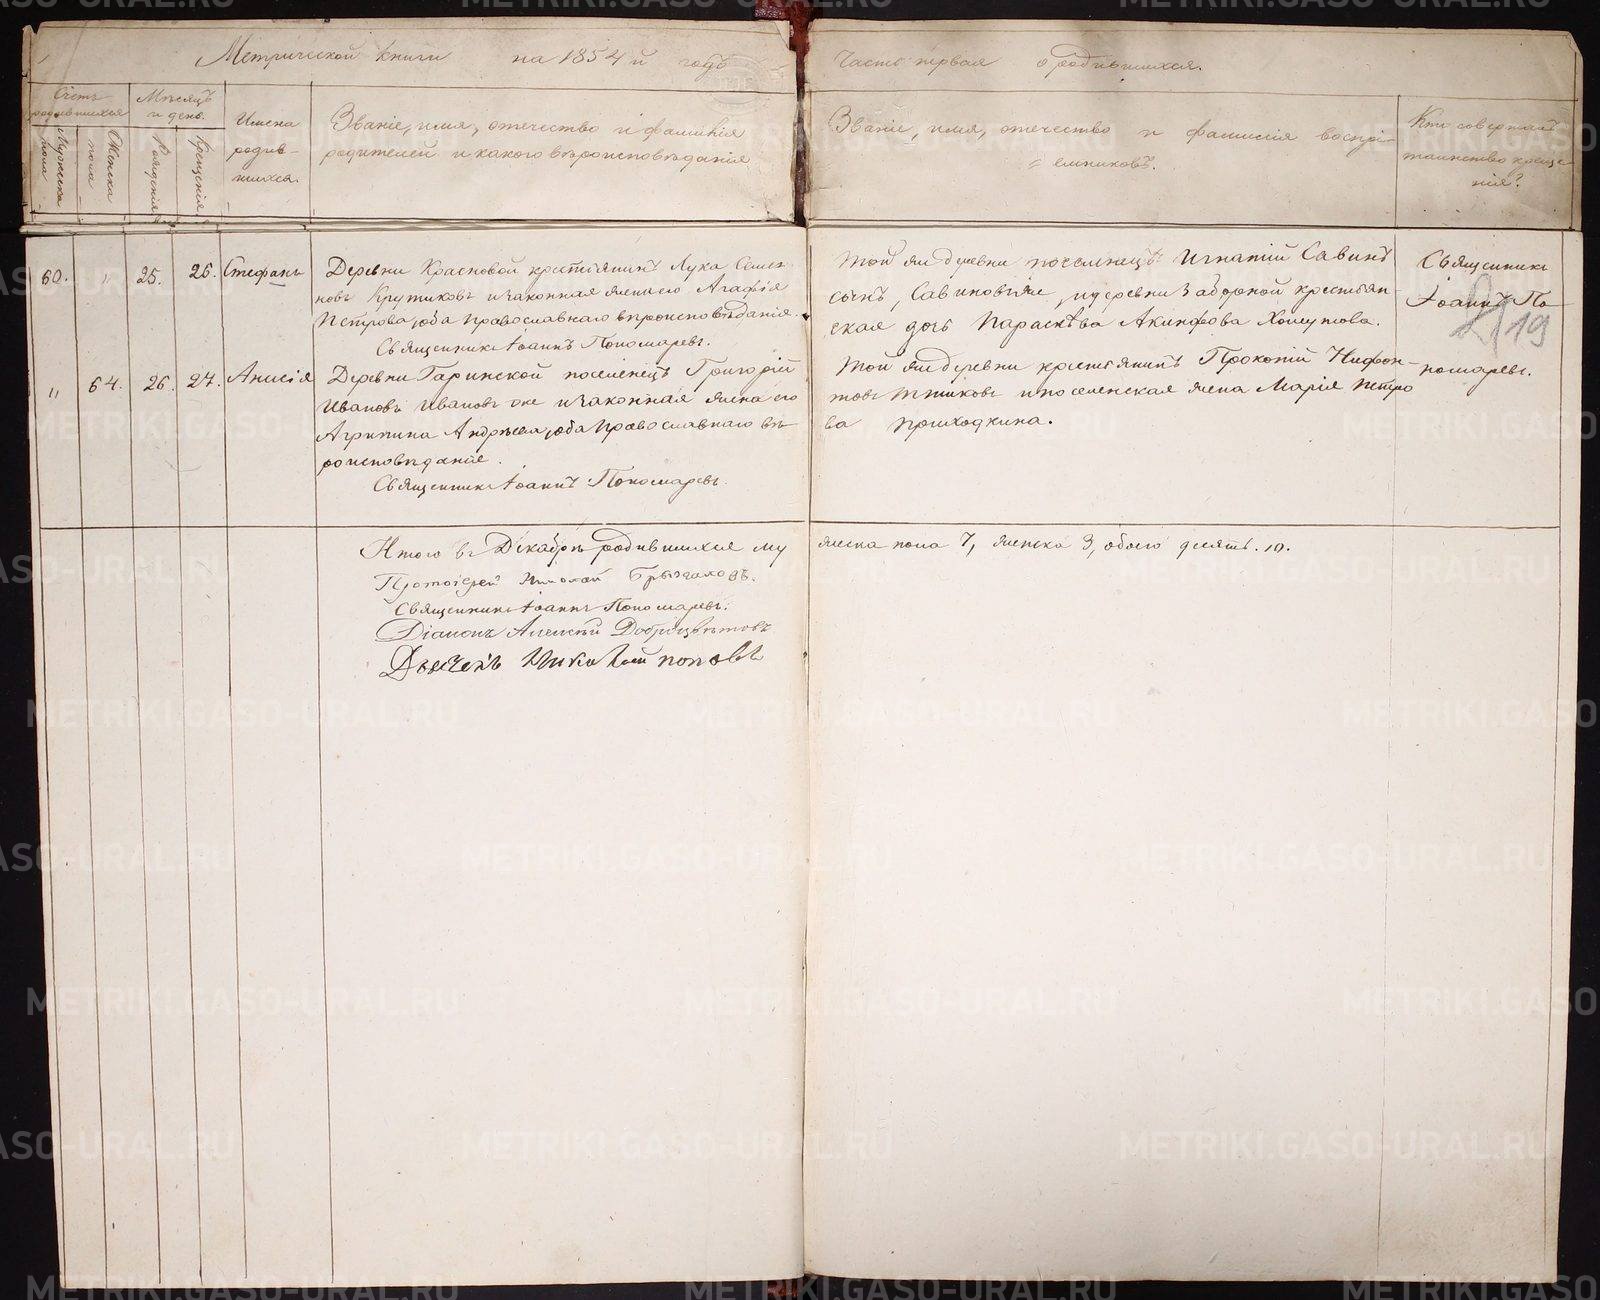 Метрической книги на 1854й годъ
Часть первая о родившихся.
Счетъ родившихся
Мужеска пола
Женска пола
Мѣсяцъ и день.
Рожденія
Крещенія
Имена
родив-
шихся.
Званіе, имя, отечество и фамилія
родителей и какого вѣроисповѣданія
Званіе, имя, отечество и фамилія воспрі-
=емниковъ.
Кто совершалъ
таинство креще-
нія?
60. " 25. 26. Стефанъ
Деревни Красновой крестьянинъ Лука Семе-
новъ Крутиковъ и законная жена его Агафія
Петрова, оба православнаго вѣроисповѣданія.
Священникъ Іоаннъ Пономаревъ.
Той же деревни поселенецъ Игнатій Савинъ
сынъ, Савиновыхъ, и деревни Заборной крестьян-
ская дочь Параскѣва Акинфова Хомутова.
Священникъ
Іоаннъ По-
номаревъ.
19
" 64. 26. 27. Анисія
Деревни Гаринской поселенецъ Григорій
Ивановъ Ивановъ же и законная жена его
Агрипина Андрѣева, оба православнаго вѣ-
роисповѣданія.
Священникъ Іоаннъ Пономаревъ
Той же деревни крестьянинъ Прокопій Нифон-
товъ и поселенская жена Марія Петро
ва Приходкина.
Итого въ Декабрѣ родившихся му
жеска пола 7, женска 3, обоего десять. 10.
Протоіерей Николай
Священникъ Іоаннъ Пономаревъ.
Діаконъ Алексѣй Доброцвѣтовъ
Дьячекъ Николай Поповъ
METRIKI.GASO-URAL.RU